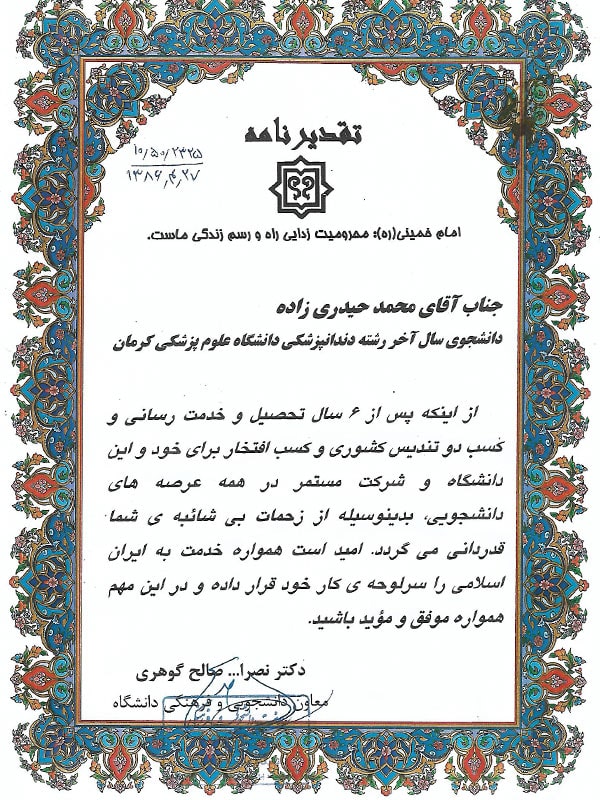 تقدیرنامه
۱۰/۵۰/۲۳۲۵
۱۳۸۶٫۴٫۲۷
امام خمینی(ره): محرومیت زدایی راه و رسم زندگی ماست.
جناب آقای محمد حیدری زاده
دانشجوی سال آخر رشته دندانپزشکی دانشگاه علوم پزشکی کرمان
از اینکه پس از ۶ سال تحصیل و خدمت رسانی و
کسب دو تندیس کشوری و کسب افتخار برای خود و این
دانشگاه و شرکت مستمر در همه عرصه های
دانشجویی، بدینوسیله از زحمات بی شائبه ی شما
قدردانی می گردد. امید است همواره خدمت به ایران
اسلامی را سرلوحه ی کار خود قرار داده و در این مهم
همواره موفق و مؤید باشید.
دکتر نصرا... صالح گوهری
معاون دانشجویی و فرهنگی دانشگاه